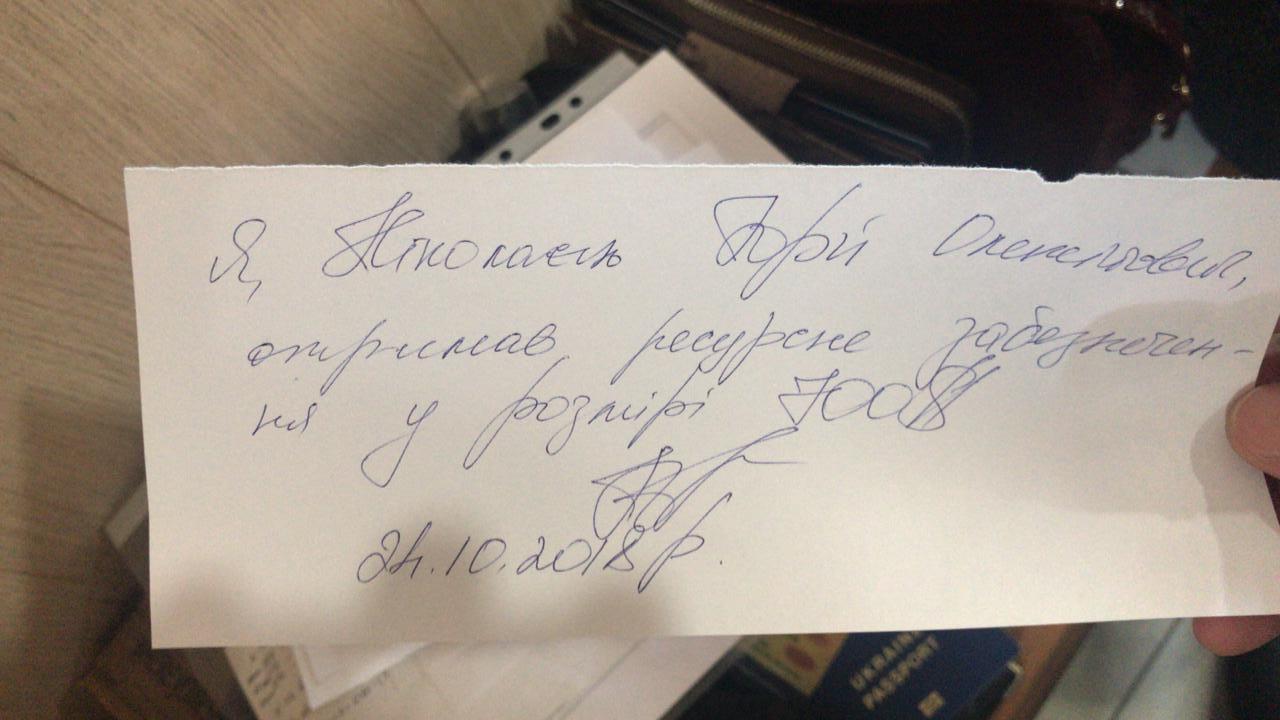 Я, Ніколаєць Юрій Олексійович,
отримав ресурсне забезпечен-
ня у розмірі 700$
24.10.2018 р.
UKRAINE
PASSPORT